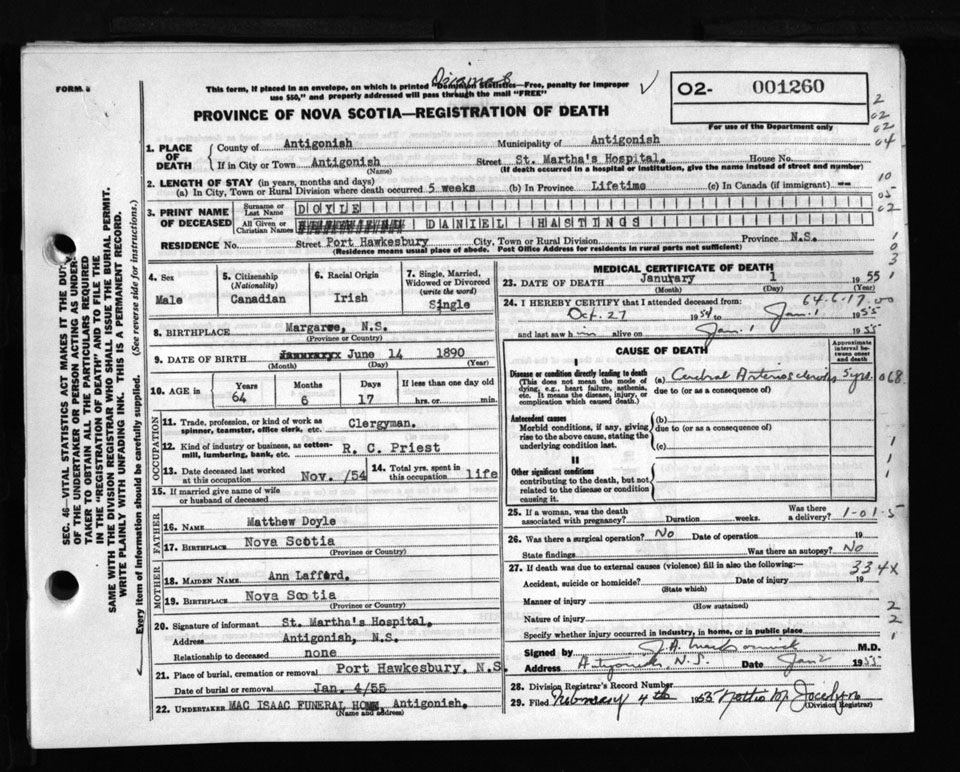 FORM
This form, if placed in an envelope, on which is printed "Dominion Statistics—Free, penalty for improper
use $50," and properly addressed will pass through the mail "FREE"
02- 001260
For use of the Department only
PROVINCE OF NOVA SCOTIA—REGISTRATION OF DEATH
SEC. 46—VITAL STATISTICS ACT MAKES IT THE DUTY
OF THE UNDERTAKER OR PERSON ACTING AS UNDER-
TAKER TO OBTAIN ALL THE PARTICULARS REQUIRED
IN THE "REGISTRATION OF DEATH" AND TO FILE THE
SAME WITH THE DIVISION REGISTRAR WHO SHALL ISSUE THE BURIAL PERMIT.
WRITE PLAINLY WITH UNFADING INK. THIS IS A PERMANENT RECORD.
Every item of information should be carefully supplied. (See reverse side for instructions.)
1. PLACE OF DEATH
County of Antigonish Municipality of Antigonish
If in City or Town Antigonish Street St. Martha's Hospital. House No.
(Name) (If death occurred in a hospital or institution, give the name instead of street and number)
2. LENGTH OF STAY (in years, months and days)
(a) In City, Town or Rural Division where death occurred 5 weeks (b) In Province Lifetime (c) In Canada (if immigrant) --
3. PRINT NAME OF DECEASED
Surname or Last Name DOYLE
All Given or Christian Names DANIEL HASTINGS
RESIDENCE No. Street Port Hawkesbury City, Town or Rural Division Province N.S.
(Residence means usual place of abode. Post Office Address for residents in rural parts not sufficient)
4. Sex Male
5. Citizenship (Nationality) Canadian
6. Racial Origin Irish
7. Single, Married, Widowed or Divorced (write the word) Single
8. BIRTHPLACE Margaree, N.S.
(Province or Country)
9. DATE OF BIRTH June 14 1890
(Month) (Day) (Year)
10. AGE in Years 64 Months 6 Days 17 If less than one day old hrs. or min.
OCCUPATION
11. Trade, profession, or kind of work as spinner, teamster, office clerk, etc. Clergyman.
12. Kind of industry or business, as cotton-mill, lumbering, bank, etc. R. C. Priest
13. Date deceased last worked at this occupation Nov. /54 14. Total yrs. spent in this occupation life
15. If married give name of wife or husband of deceased
FATHER
16. NAME Matthew Doyle
17. BIRTHPLACE Nova Scotia
(Province or Country)
MOTHER
18. MAIDEN NAME Ann Lafford.
19. BIRTHPLACE Nova Scotia
(Province or Country)
20. Signature of informant St. Martha's Hospital,
Address Antigonish, N.S.
Relationship to deceased none
21. Place of burial, cremation or removal Port Hawkesbury, N.S.
Date of burial or removal Jan. 4/55
22. UNDERTAKER MAC ISAAC FUNERAL HOME, Antigonish.
(Name and address)
MEDICAL CERTIFICATE OF DEATH
23. DATE OF DEATH Janurary 1 1955
(Month) (Day) (Year)
64-6-17-00
24. I HEREBY CERTIFY that I attended deceased from:
Oct. 27 1954 Jan. 1 1955
and last saw him alive on Jan. 1 1955
CAUSE OF DEATH
Approximate interval between onset and death
I
Disease or condition directly leading to death
(This does not mean the mode of dying, e.g., heart failure, asthenia, etc. It means the disease, injury, or complication which caused death.)
(a) Cerebral Arteriosclerosis 5 yrs.
due to (or as a consequence of)
Antecedent causes
Morbid conditions, if any, giving rise to the above cause, stating the underlying condition last.
(b)
due to (or as a consequence of)
(c)
II
Other significant conditions
contributing to the death, but not related to the disease or condition causing it.
25. If a woman, was the death associated with pregnancy? Duration weeks. Was there a delivery? 1-01-5
26. Was there a surgical operation? No Date of operation 19
State findings Was there an autopsy? No
27. If death was due to external causes (violence) fill in also the following:— 334X
Accident, suicide or homicide? Date of injury 19
(State which)
Manner of injury
(How sustained)
Nature of injury
Specify whether injury occurred in industry, in home, or in public place
Signed by M.D.
Address Antigonish, N.S. Date Jan 2 1955
28. Division Registrar's Record Number
29. Filed 1953
(Division Registrar)
2
02
02
04
10
05
02
068
1
1
1
2
2
1